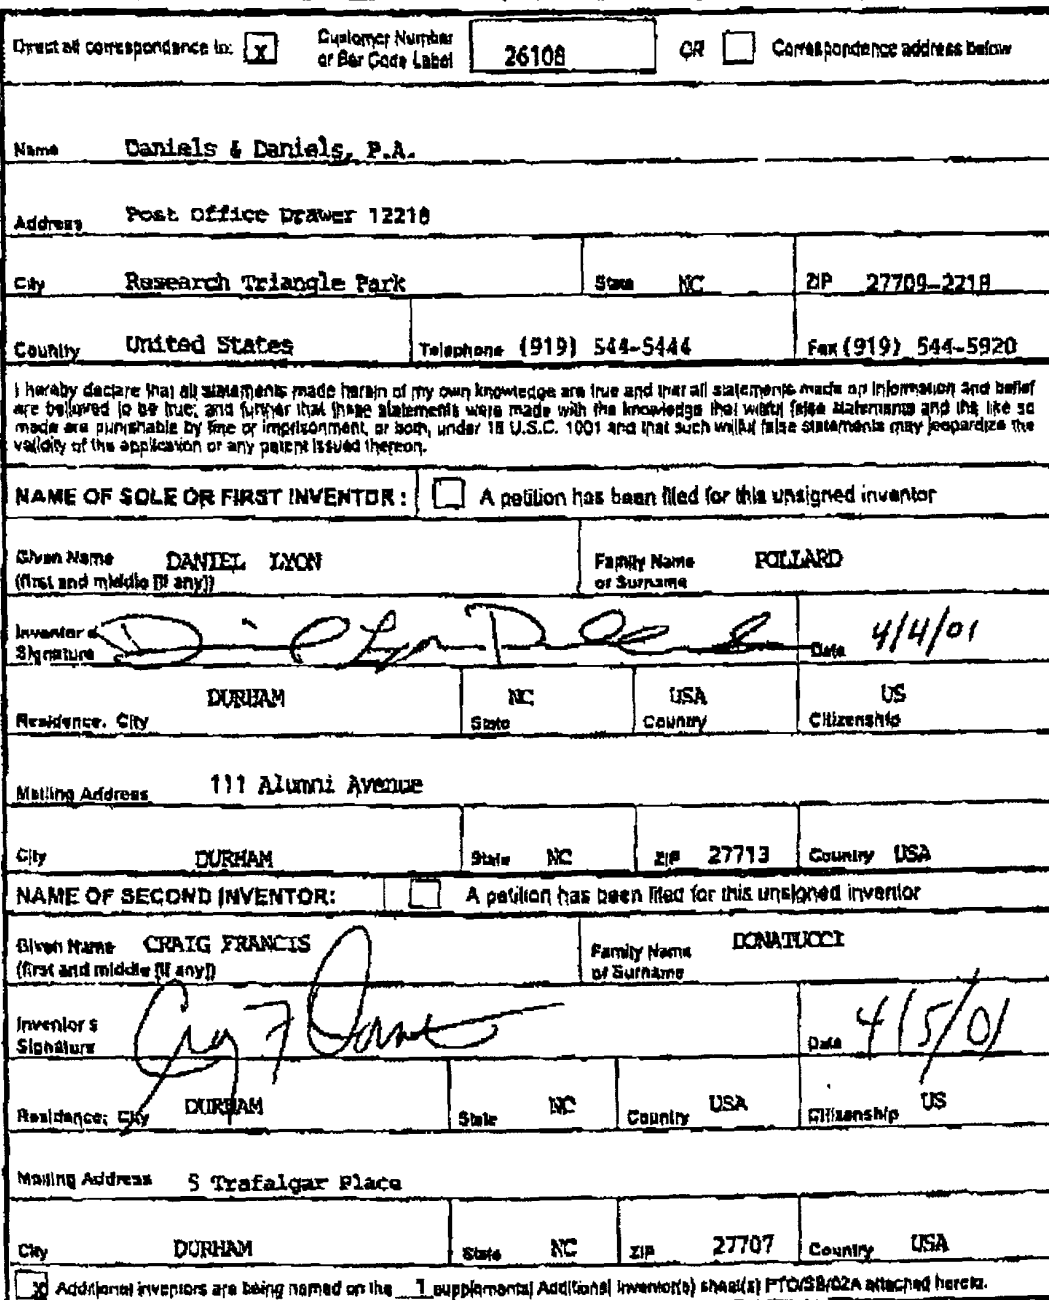 Direct all correspondence to: x Customer Number or Bar Code Label 26108 OR Correspondence address below
Name Daniels & Daniels, P.A.
Address Post Office Drawer 12218
City Research Triangle Park State NC ZIP 27709-2218
Country United States Telephone (919) 544-5444 Fax (919) 544-5920
I hereby declare that all statements made herein of my own knowledge are true and that all statements made on information and belief
are believed to be true; and further that these statements were made with the knowledge that willful false statements and the like so
made are punishable by fine or imprisonment, or both, under 18 U.S.C. 1001 and that such willful false statements may jeopardize the
validity of the application or any patent issued thereon.
NAME OF SOLE OR FIRST INVENTOR : A petition has been filed for this unsigned inventor
Given Name DANIEL LYON Family Name POLLARD
(first and middle [if any]) or Surname
Inventor's Signature Daniel Lyon Pollard Date 4/4/01
DURHAM NC USA US
Residence: City State Country Citizenship
Mailing Address 111 Alumni Avenue
City DURHAM State NC ZIP 27713 Country USA
NAME OF SECOND INVENTOR: A petition has been filed for this unsigned inventor
Given Name CRAIG FRANCIS Family Name DONATUCCI
(first and middle [if any]) or Surname
Inventor's Signature Craig F Donatucci Date 4/5/01
Residence: City DURHAM State NC Country USA Citizenship US
Mailing Address 5 Trafalgar Place
City DURHAM State NC ZIP 27707 Country USA
x Additional inventors are being named on the 1 supplemental Additional Inventor(s) sheet(s) PTO/SB/02A attached hereto.